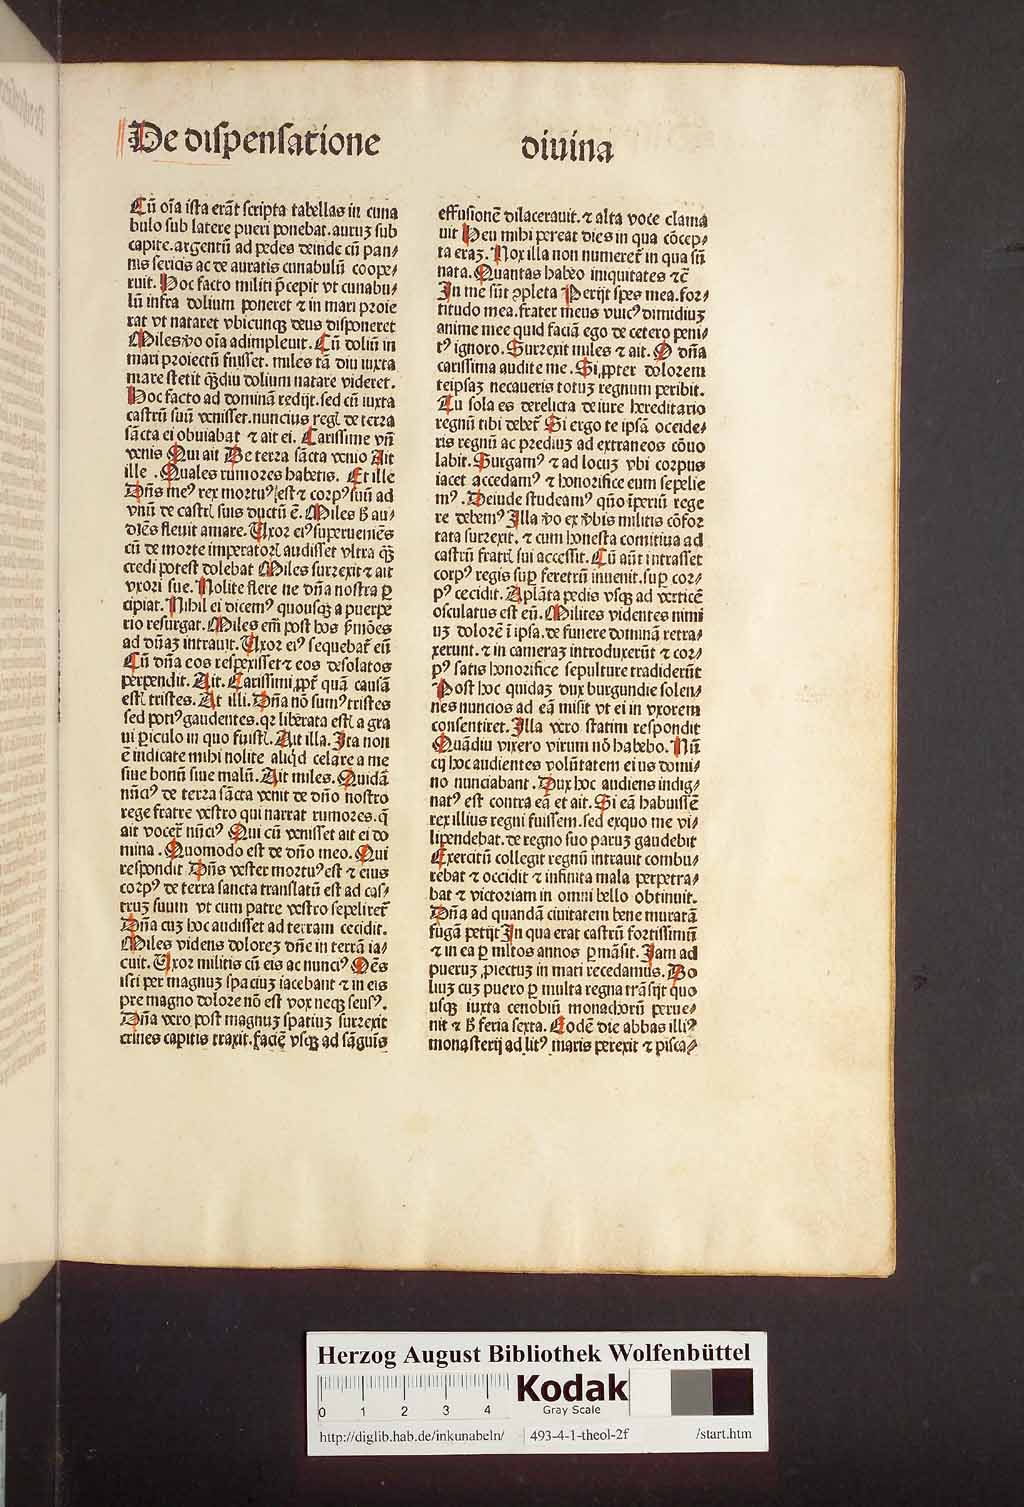 De dispensatione
diuina
Cū oīa ista erāt scripta tabellas in cuna
bulo sub latere pueri ponebat. auruꝫ sub
capite. argentū ad pedes deinde cū pan⸗
nis sericis ac de auratis cunabulū coope⸗
ruit. Hoc facto militi p̄cepit vt cunabu⸗
lū infra dolium poneret ⁊ in mari proie
rat vt nataret vbicunqꝫ deus disponeret
Miles v̄o oīa adimpleuit. Cū doliū in
mari proiectū fuisset. miles tā diu iuxta
mare stetit qͣꝫdiu dolium natare videret.
Hoc facto ad dominā redijt. sed cū iuxta
castrū suū venisset. nuncius regꝭ de terra
sācta ei obuiabat ⁊ ait ei. Carissime vn̄
venis Qui ait De terra sācta venio Ait
ille. Quales rumores habetis. Et ille
Dn̄s meꝰ rex mortuꝰ est ⁊ corpꝰ suū ad
vnū de castrꝭ suis ductū ē. Miles ß au⸗
diēs fleuit amare. Uxor eiꝰ superueniēs
cū de morte imperatorꝭ audisset vltra qͣꝫ
credi potest dolebat Miles surrexit ⁊ ait
vxori sue. Nolite flere ne dn̄a nostra ꝑ
cipiat. Nihil ei dicemꝰ quousqꝫ a puerpe
rio resurgat. Miles em̄ post hos ßmōes
ad dn̄aꝫ intrauit. Uxor eiꝰ sequebat᷑ eū
Cū dn̄a eos respexisset ⁊ eos desolatos
perpendit. Ait. Carissimi, ꝓpt᷑ quā causā
estꝭ tristes. At illi. Dn̄a nō sumꝰ tristes
sed potiꝰ gaudentes. qꝛ liberata estꝭ a gra
ui ꝑiculo in quo fuistꝭ. Ait illa. Ita non
ē indicate mihi nolite aliqͥd celare a me
siue bonū siue malū. Ait miles. Quidā
nūciꝰ de terra sācta venit de dn̄o nostro
rege fratre vestro qui narrat rumores. q̄
ait vocet᷑ nūciꝰ Qui cū venisset ait ei do
mina. Quomodo est de dn̄o meo. Qui
respondit Dn̄s vester mortuꝰ est ⁊ eius
corpꝰ de terra sancta translatū est ad cas⸗
truꝫ suum vt cum patre vestro sepeliret᷑
Dn̄a cuꝫ hoc audisset ad terram cecidit.
Miles videns doloreꝫ dn̄e in terrā ia⸗
cuit. Uxor militis cū eis ac nunciꝰ Oēs
isti per magnuꝫ spacium iacebant ⁊ in eis
pre magno dolore nō est vox neqꝫ sensꝰ.
Dn̄a vero post magnuꝫ spatiuꝫ surrexit
crines capitis traxit. faciē vsqꝫ ad sāguīs
effusionē dilacerauit. ⁊ alta voce clama
uit Heu mihi pereat dies in qua cōcep⸗
ta eraꝫ. Nox illa non numeret᷑ in qua sū
nata. Quantas habeo iniquitates ⁊c̄
In me sūt ꝯpleta Perijt spes mea. for⸗
titudo mea. frater meus vnicꝰ dimidiuꝫ
anime mee quid faciā ego de cetero peni⸗
tꝰ ignoro. Surrexit miles ⁊ ait. O dn̄a
carissima audite me. Si ꝓpter dolorem
teipsaꝫ necaueris totuꝫ regnum peribit.
Tu sola es derelicta de iure hereditario
regnū tibi debet᷑ Si ergo te ipsā occide⸗
ris regnū ac prediuꝫ ad extraneos cōuo
labit. Surgamꝰ ⁊ ad locuꝫ vbi corpus
iacet accedamꝰ ⁊ honorifice eum sepelie
mꝰ. Deinde studeamꝰ qūo īperiū rege
re debemꝰ Illa v̄o ex v̄bis militis cōfor
tata surrexit. ⁊ cum honesta comitiua ad
castrū fratrꝭ sui accessit. Cū aūt intrasset
corpꝰ regis suꝑ feretrū inuenit. suꝑ cor⸗
pꝰ cecidit. A plāta pedis vsqꝫ ad verticē
osculatus est eū. Milites videntes nimi
uꝫ dolorē ī ipsa. de funere dominā retra⸗
xerunt. ⁊ in cameraꝫ introduxerūt ⁊ cor⸗
pꝰ satis honorifice sepulture tradiderūt
Post hoc quidaꝫ dux burgundie solen⸗
nes nuncios ad eā misit vt ei in vxorem
consentiret. Illa vero statim respondit
Quādiu vixero virum nō habebo. Nū
cij hoc audientes volūtatem eius domi⸗
no nunciabant. Dux hoc audiens indig⸗
natꝰ est contra eā et ait. Si eā habuissē
rex illius regni fuissem. sed exquo me vi⸗
lipendebat. de regno suo paruꝫ gaudebit
Exercitū collegit regnū intrauit combu⸗
rebat ⁊ occidit ⁊ infinita mala perpetra⸗
bat ⁊ victoriam in omni bello obtinuit.
Dn̄a ad quandā ciuitatem bene muratā
fugā petijt In qua erat castrū fortissimū
⁊ in ea ꝑ ml̄tos annos ꝑmāsit. Jam ad
pueruꝫ ꝓiectuꝫ in mari recedamus. Do
liuꝫ cuꝫ puero ꝑ multa regna trāsijt quo
usqꝫ iuxta cenobiū monachorū perue⸗
nit ⁊ ß feria sexta. Eodē die abbas illiꝰ
monasterij ad litꝰ maris perexit ⁊ pisca⸗
Herzog August Bibliothek Wolfenbüttel
0 1 2 3 4
Kodak
Gray Scale
http://diglib.hab.de/inkunabeln/
493-4-1-theol-2f
/start.htm